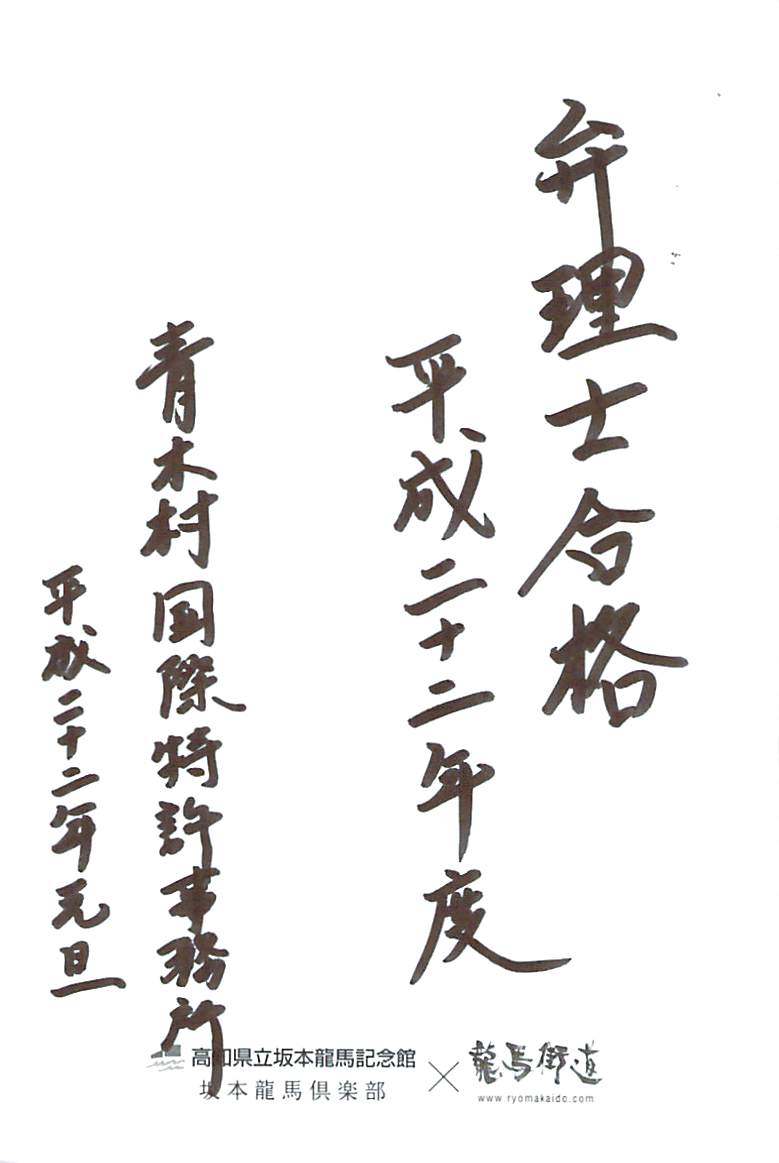 弁理士合格
平成二十二年度
青木村国際特許事務所
平成二十二年元旦
高知県立坂本龍馬記念館
坂本龍馬倶楽部
×
龍馬街道
www.ryomakaido.com